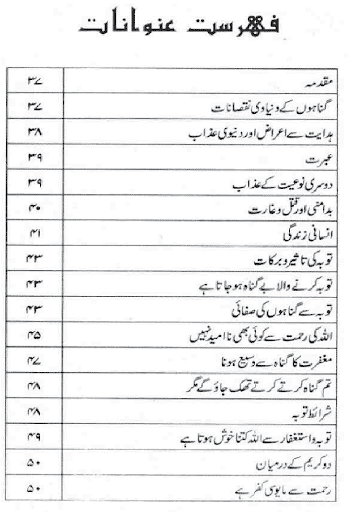 فہرست عنوانات
مقدمہ ۳۷
گناہوں کے دنیاوی نقصانات ۳۷
ہدایت سے اعراض اور دنیوی عذاب ۳۸
عبرت ۳۹
دوسری نوعیت کے عذاب ۳۹
بدامنی اور قتل و غارت ۴۰
انسانی زندگی ۴۱
توبہ کی تاثیر و برکات ۴۳
توبہ کرنے والا بے گناہ ہو جاتا ہے ۴۳
توبہ سے گناہوں کی صفائی ۴۳
اللہ کی رحمت سے کوئی بھی ناامید نہیں ۴۵
مغفرت کا گناہ سے وسیع ہونا ۴۷
تم گناہ کرتے کرتے تھک جاؤ گے مگر ۴۸
شرائط توبہ ۴۸
توبہ و استغفار سے اللہ کتنا خوش ہوتا ہے ۴۹
دو کریم کے درمیان ۵۰
رحمت سے مایوسی کفر ہے ۵۰